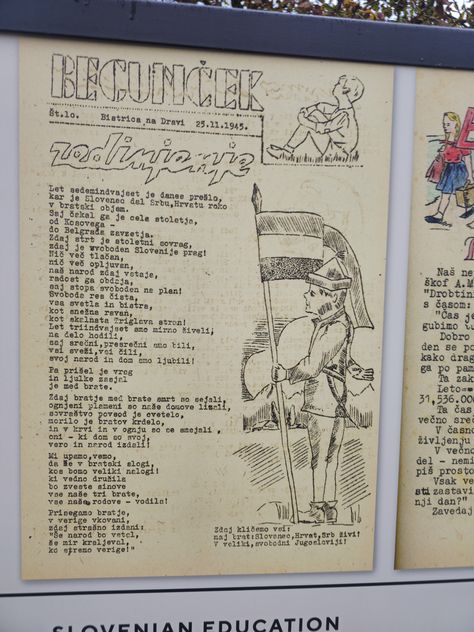 BEGUNČEK
Št.10. Bistrica na Dravi 25.11.1945.
zedinjenje
Let sedemindvajset je danes prešlo,
kar je Slovenec dal Srbu, Hrvatu roko
v bratski objem.
Saj čakal ga je cela stoletja,
od Kosovega -
do Belgrada zavzetja.
Zdaj strt je stoletni sovrag,
zdaj je svoboden Slovenije prag!
Nič več tlačan,
nič več opljuvan,
naš narod zdaj vstaja,
radost ga obdaja,
saj stopa svoboden na plan!
Svoboda res čista,
vsa svetla in bistra,
kot snežna ravan,
kot skalnata Triglava stran!
Let triindvajset smo mirno živeli,
na delo hodili,
saj srečni, presrečni smo bili,
vsi sveži, vsi čili,
svoj narod in dom smo ljubili!
Pa prišel je vrag
in ljulko zasejal
je med brate.
Zdaj bratje med brate smrt so sejali,
ognjeni plameni so naše domove lizali,
sovraštvo povsod je cvetelo,
morilo je bratov krdelo,
in v krvi in v ognju so se smejali,
oni - ki dom so svoj,
vero in narod izdali!
Mi upamo, vemo,
da še v bratski slogi,
kos bomo veliki nalogi!
ki vedno družila
bo zveste sinove
vse naše tri brate,
vse naše rodove - vodila!
Prisegamo bratje,
v verige vkovani,
zdaj strašno izdani:
"Še narod bo vstal,
še mir kraljeval,
ko stremo verige!"
Zdaj kličemo vsi:
naj brat: Slovenec, Hrvat, Srb živi!
V veliki, svobodni Jugoslaviji!
Naš ne
škof A.M
"Drobtin
s časom:
"Čas je
gubimo v
Dobro
den se po
kako drag
ga po pam
Ta zak
Leto=
31,536.000
Ta čas
večno sreč
V časno
življenju
V večno
del - nemi
piš prosto
Vsak ve
si zastavi
nji dan?"
Zavedaj
SLOVENIAN EDUCATION